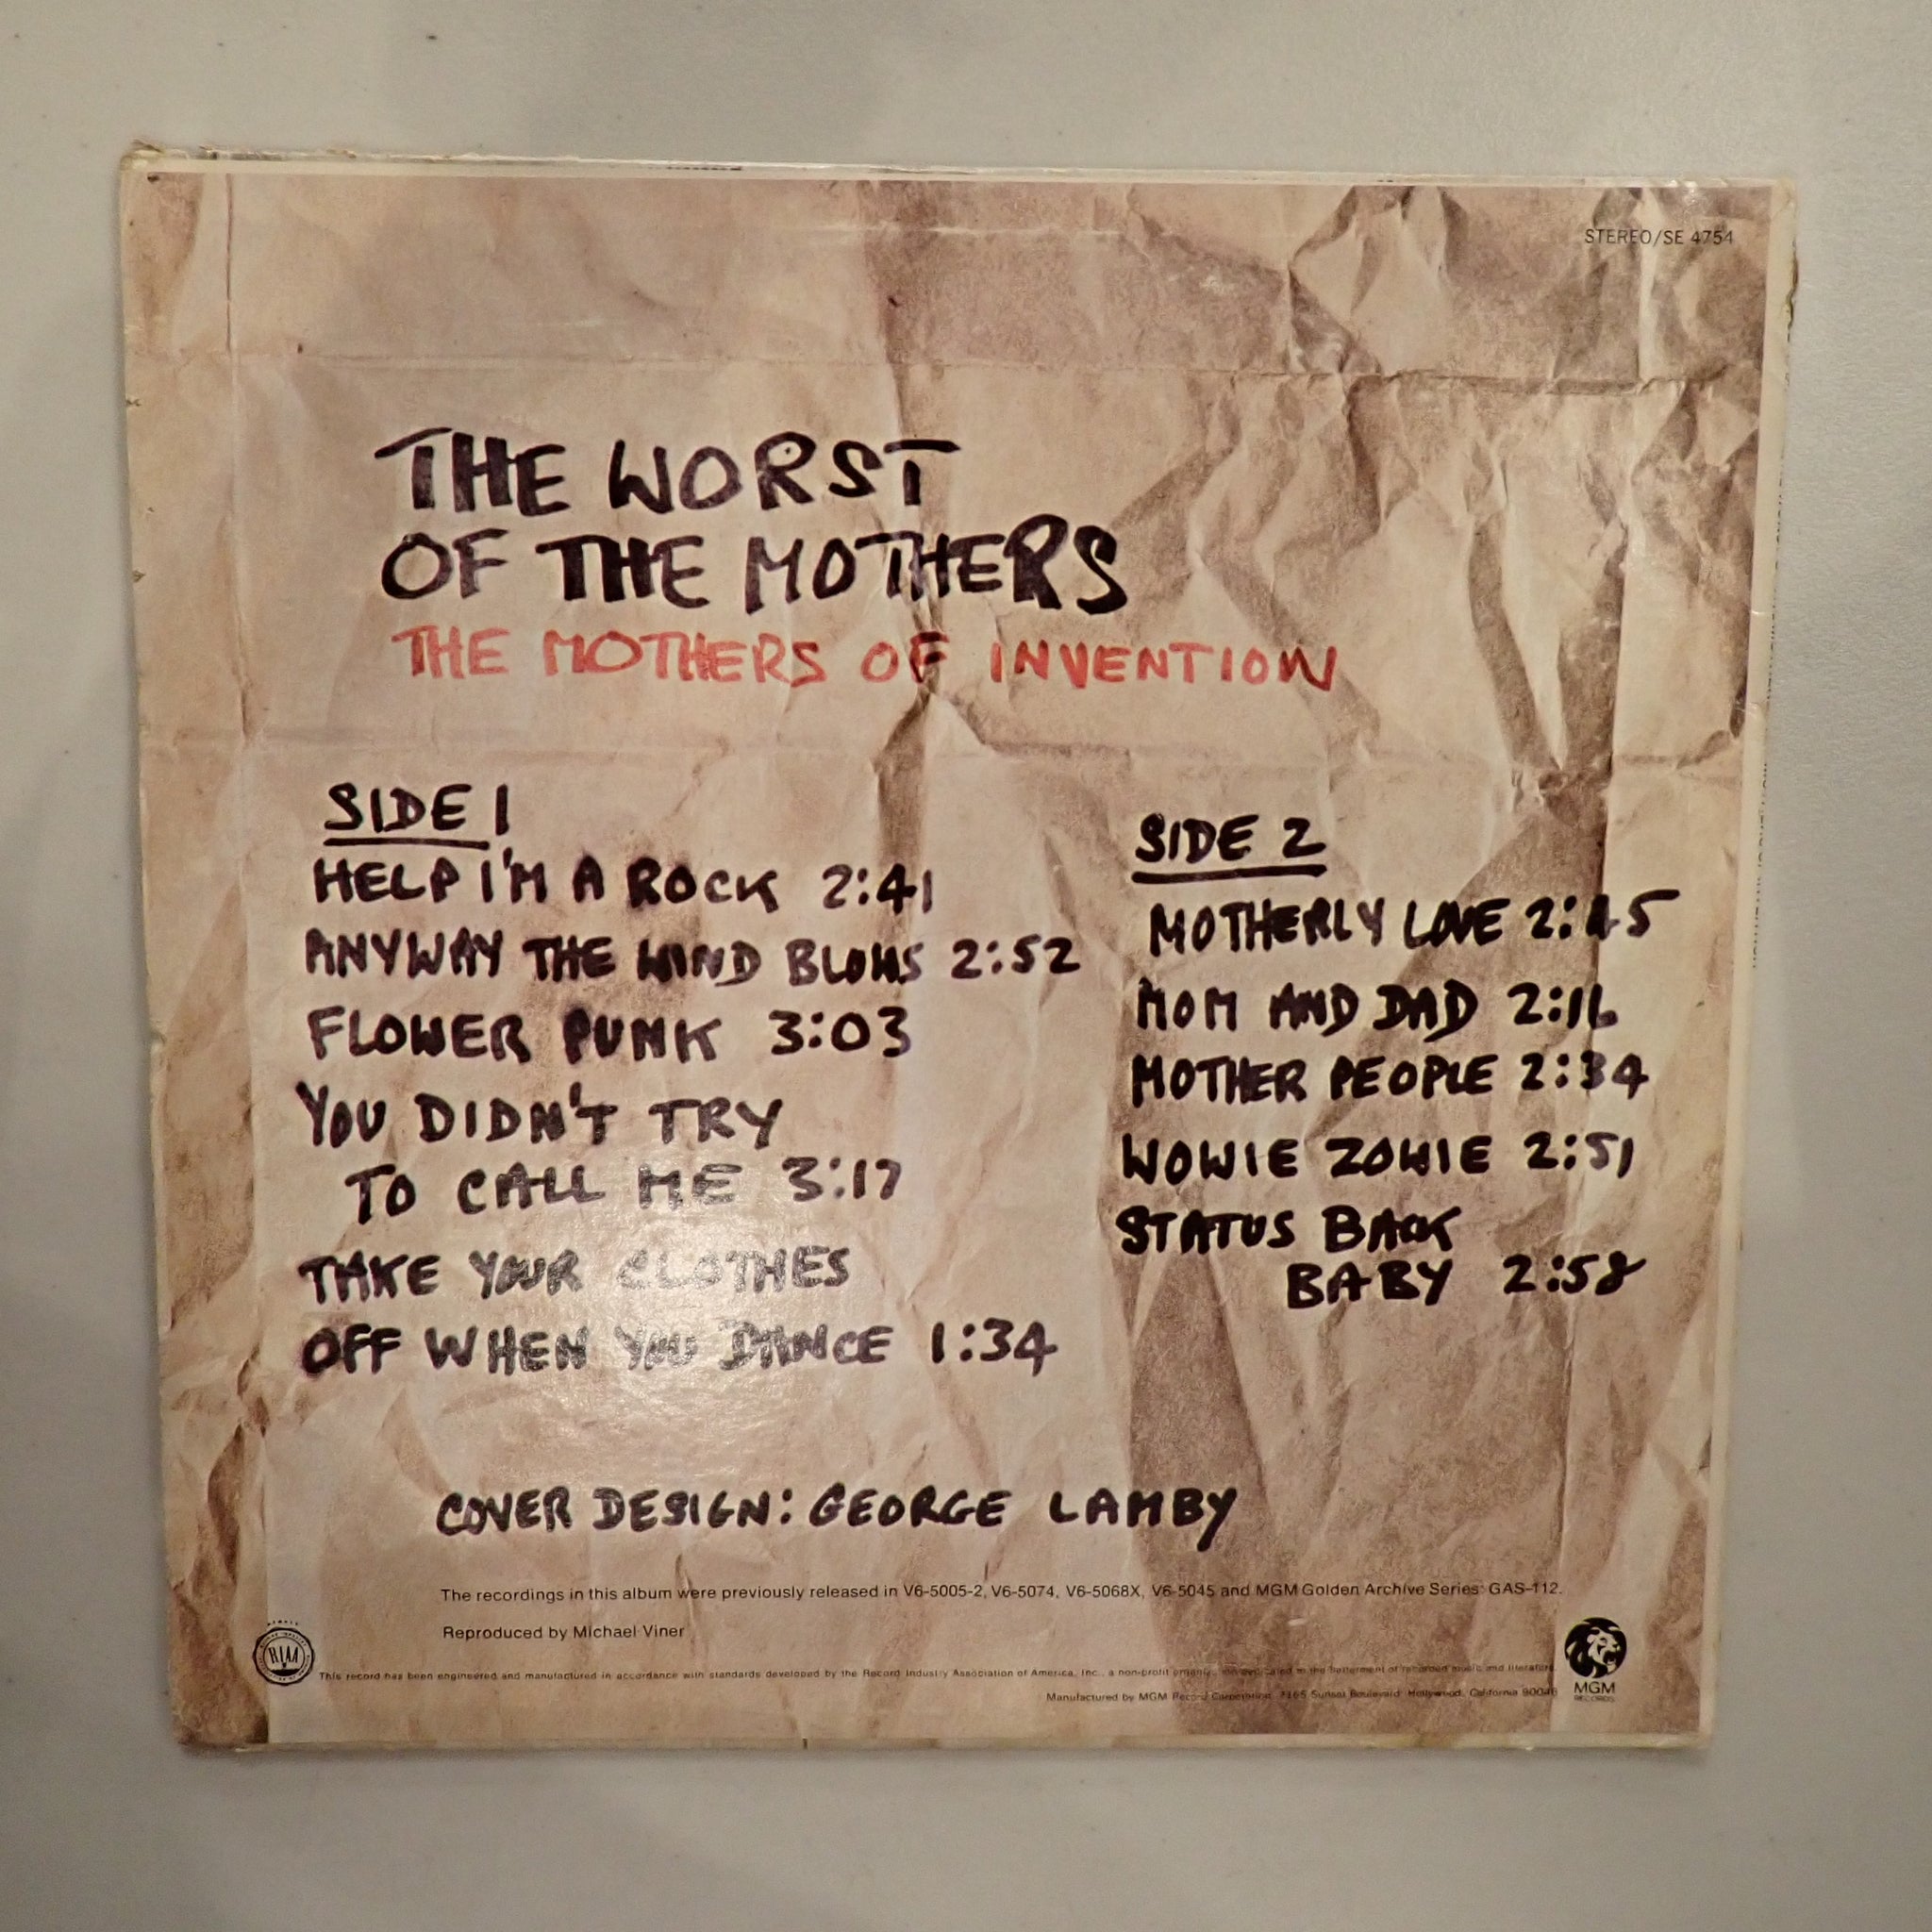 STEREO/SE 4754
THE WORST
OF THE MOTHERS
THE MOTHERS OF INVENTION
SIDE 1
HELP I'M A ROCK 2:41
ANYWAY THE WIND BLOWS 2:52
FLOWER PUNK 3:03
YOU DIDN'T TRY
TO CALL ME 3:17
TAKE YOUR CLOTHES
OFF WHEN YOU DANCE 1:34
SIDE 2
MOTHERLY LOVE 2:45
MOM AND DAD 2:16
MOTHER PEOPLE 2:34
WOWIE ZOWIE 2:51
STATUS BACK
BABY 2:58
COVER DESIGN: GEORGE LAMBY
The recordings in this album were previously released in V6-5005-2, V6-5074, V6-5068X, V6-5045 and MGM Golden Archive Series: GAS-112.
Reproduced by Michael Viner
RIAA
This record has been engineered and manufactured in accordance with standards developed by the Record Industry Association of America, Inc., a non-profit dedicated to the betterment of recorded music and literature
Manufactured by MGM Record Corporation, 7165 Sunset Boulevard, Hollywood, California 90046
MGM
RECORDS